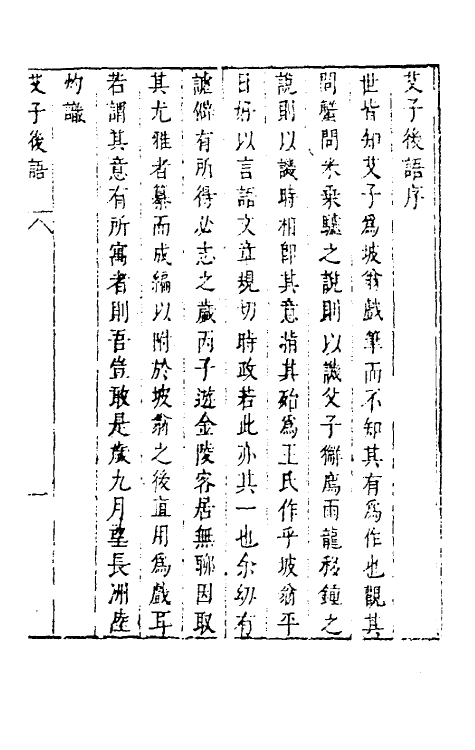 艾子後語序
世皆知艾子為坡翁戲筆而不知其有為作也觀其
問蟹問米乘驢之說則以譏父子獬廌雨龍移鐘之
說則以譏時相即其意指其殆為王氏作乎坡翁平
日好以言語文章規切時政若此亦其一也余幼有
謔癖有所得必志之歲丙子遊金陵客居無聊因取
其尤雅者纂而成編以附於坡翁之後直用為戲耳
若謂其意有所寓者則吾豈敢是歲九月望長洲陸
灼識
艾子後語 一